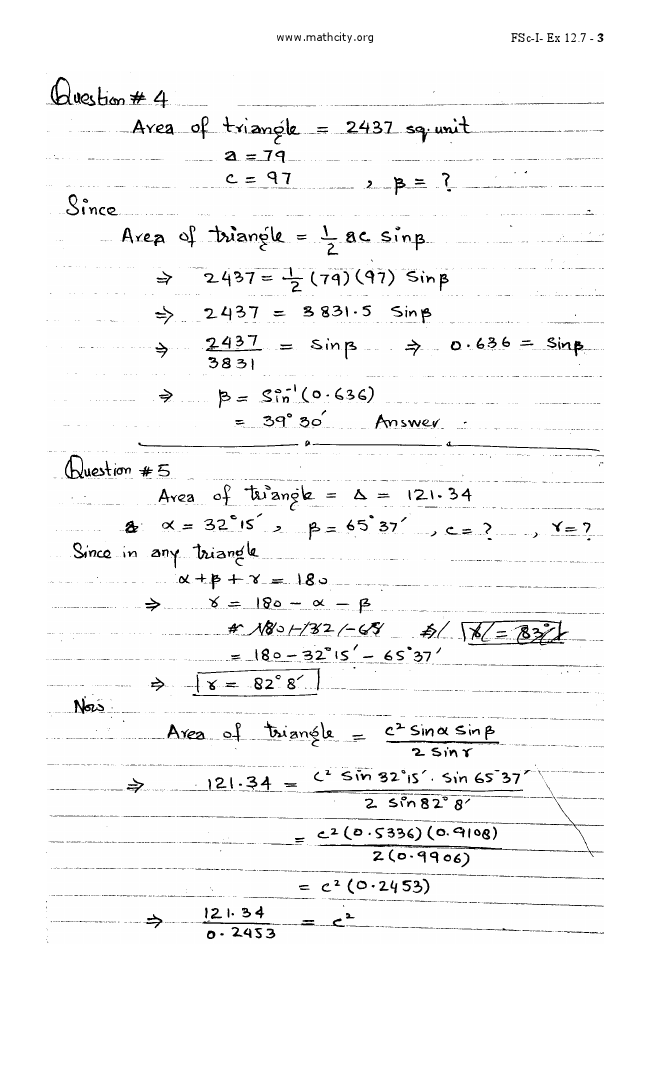 www.mathcity.org FSc-I- Ex 12.7 - 3
Question # 4
Area of triangle = 2437 sq. unit
a = 79
c = 97 , β = ?
Since
Area of triangle = 1/2 ac Sinβ
⇒ 2437 = 1/2 (79)(97) Sinβ
⇒ 2437 = 3831.5 Sinβ
⇒ 2437/3831 = Sinβ ⇒ 0.636 = Sinβ
⇒ β = Sin⁻¹(0.636)
= 39° 30′ Answer.
Question # 5
Area of triangle = Δ = 121.34
α = 32°15′, β = 65°37′, c = ?, γ = ?
Since in any triangle
α + β + γ = 180
⇒ γ = 180 - α - β
= 180 - 32°15′ - 65°37′
⇒ γ = 82°8′
Now
Area of triangle = c² Sinα Sinβ / 2 Sinγ
⇒ 121.34 = c² Sin 32°15′ . Sin 65°37′ / 2 Sin 82°8′
= c²(0.5336)(0.9108) / 2(0.9906)
= c²(0.2453)
⇒ 121.34 / 0.2453 = c²